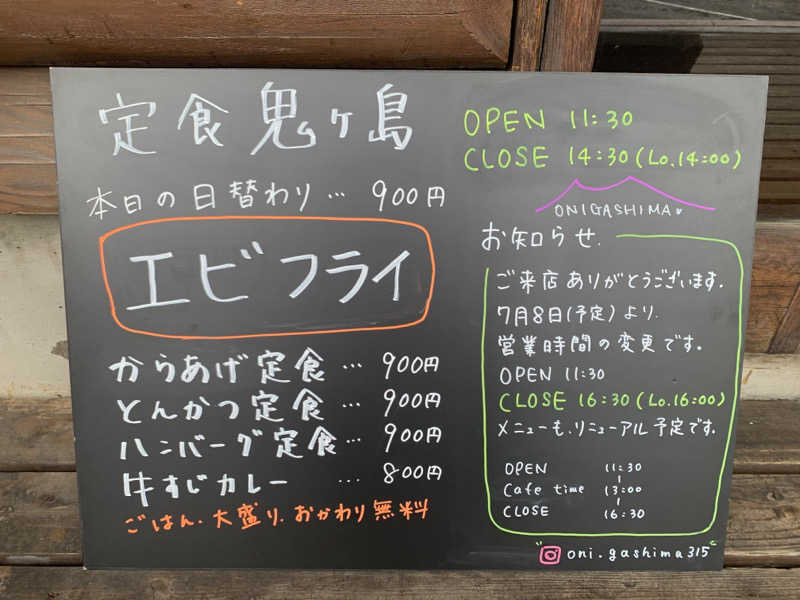 定食 鬼ヶ島
本日の日替わり… 900円
エビフライ
からあげ定食… 900円
とんかつ定食… 900円
ハンバーグ定食… 900円
牛すじカレー … 800円
ごはん.大盛り.おかわり無料
OPEN 11:30
CLOSE 14:30(Lo.14:00)
ONIGASHIMA♥
お知らせ.
ご来店ありがとうございます.
7月8日(予定)より.
営業時間の変更です.
OPEN 11:30
CLOSE 16:30(Lo.16:00)
メニューも.リニューアル予定です.
OPEN 11:30
Cafe time 13:00
CLOSE 16:30
"oni.gashima315"